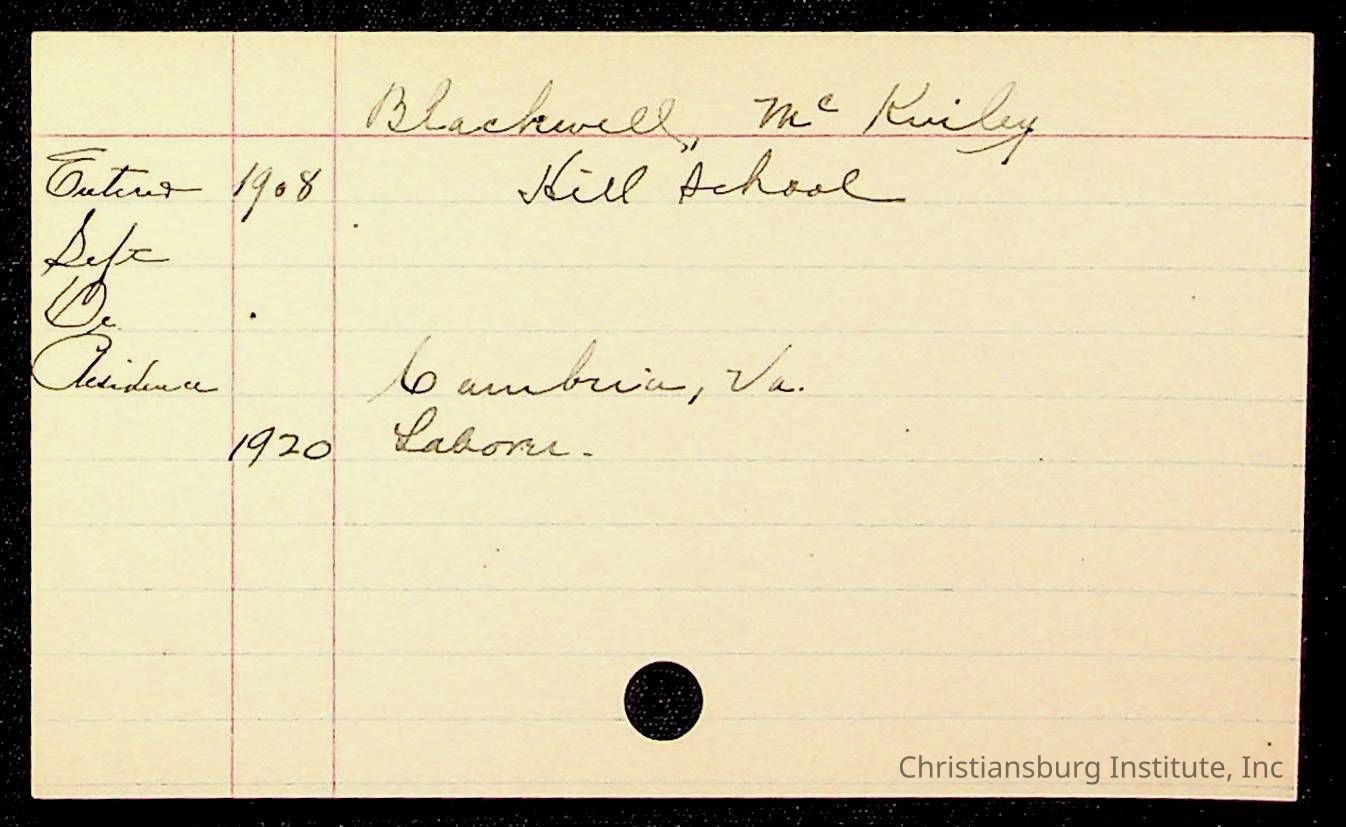 Blackwell, Mc Kinley
Entered 1908 Hill School
Left
Residence Cambria, Va.
1920 Laborer.
Christiansburg Institute, Inc